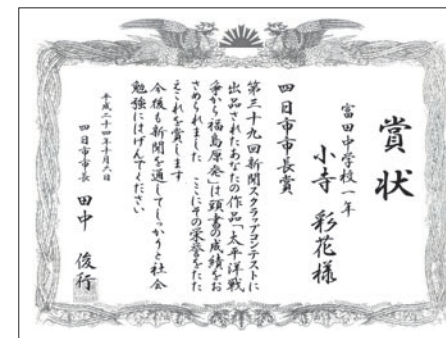 賞状
富田中学校一年
小寺彩花様
四日市市長賞
第三十九回新聞スクラップコンテストに
出品されたあなたの作品「太平洋戦
争から福島原発」は頭書の成績をお
さめられました ここにその栄誉をたた
えこれを賞します
今後も新聞を通してしっかりと社会
勉強にはげんでください
平成二十四年十月六日
四日市市長 田中俊行